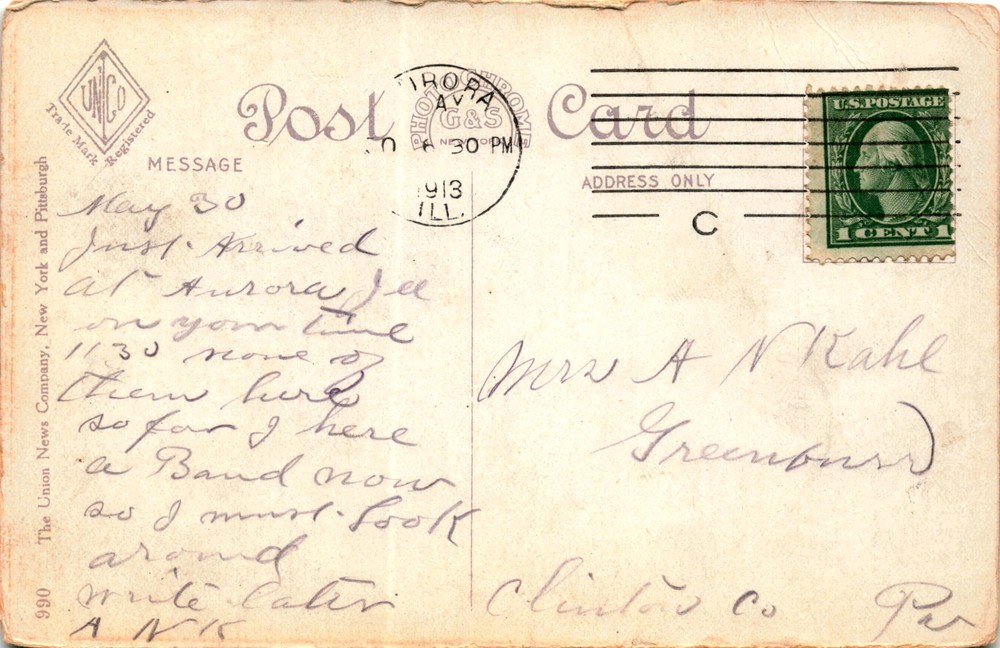 UNCo
Trade Mark Registered
Post Card
PHOTOCHROME
G&S
NEW YORK
MESSAGE
ADDRESS ONLY
The Union News Company, New York and Pittsburgh
990
URORA
AY
0 30 PM
1913
ILL.
C
U.S. POSTAGE
1 CENT 1
May 30
Just Arrived
at Aurora Ill
on your time
1130 none of
them here
so far I here
a Band now
so I must look
around
write later
A N K
Mrs A N Kahl
Greenburr
Clinton Co Pa